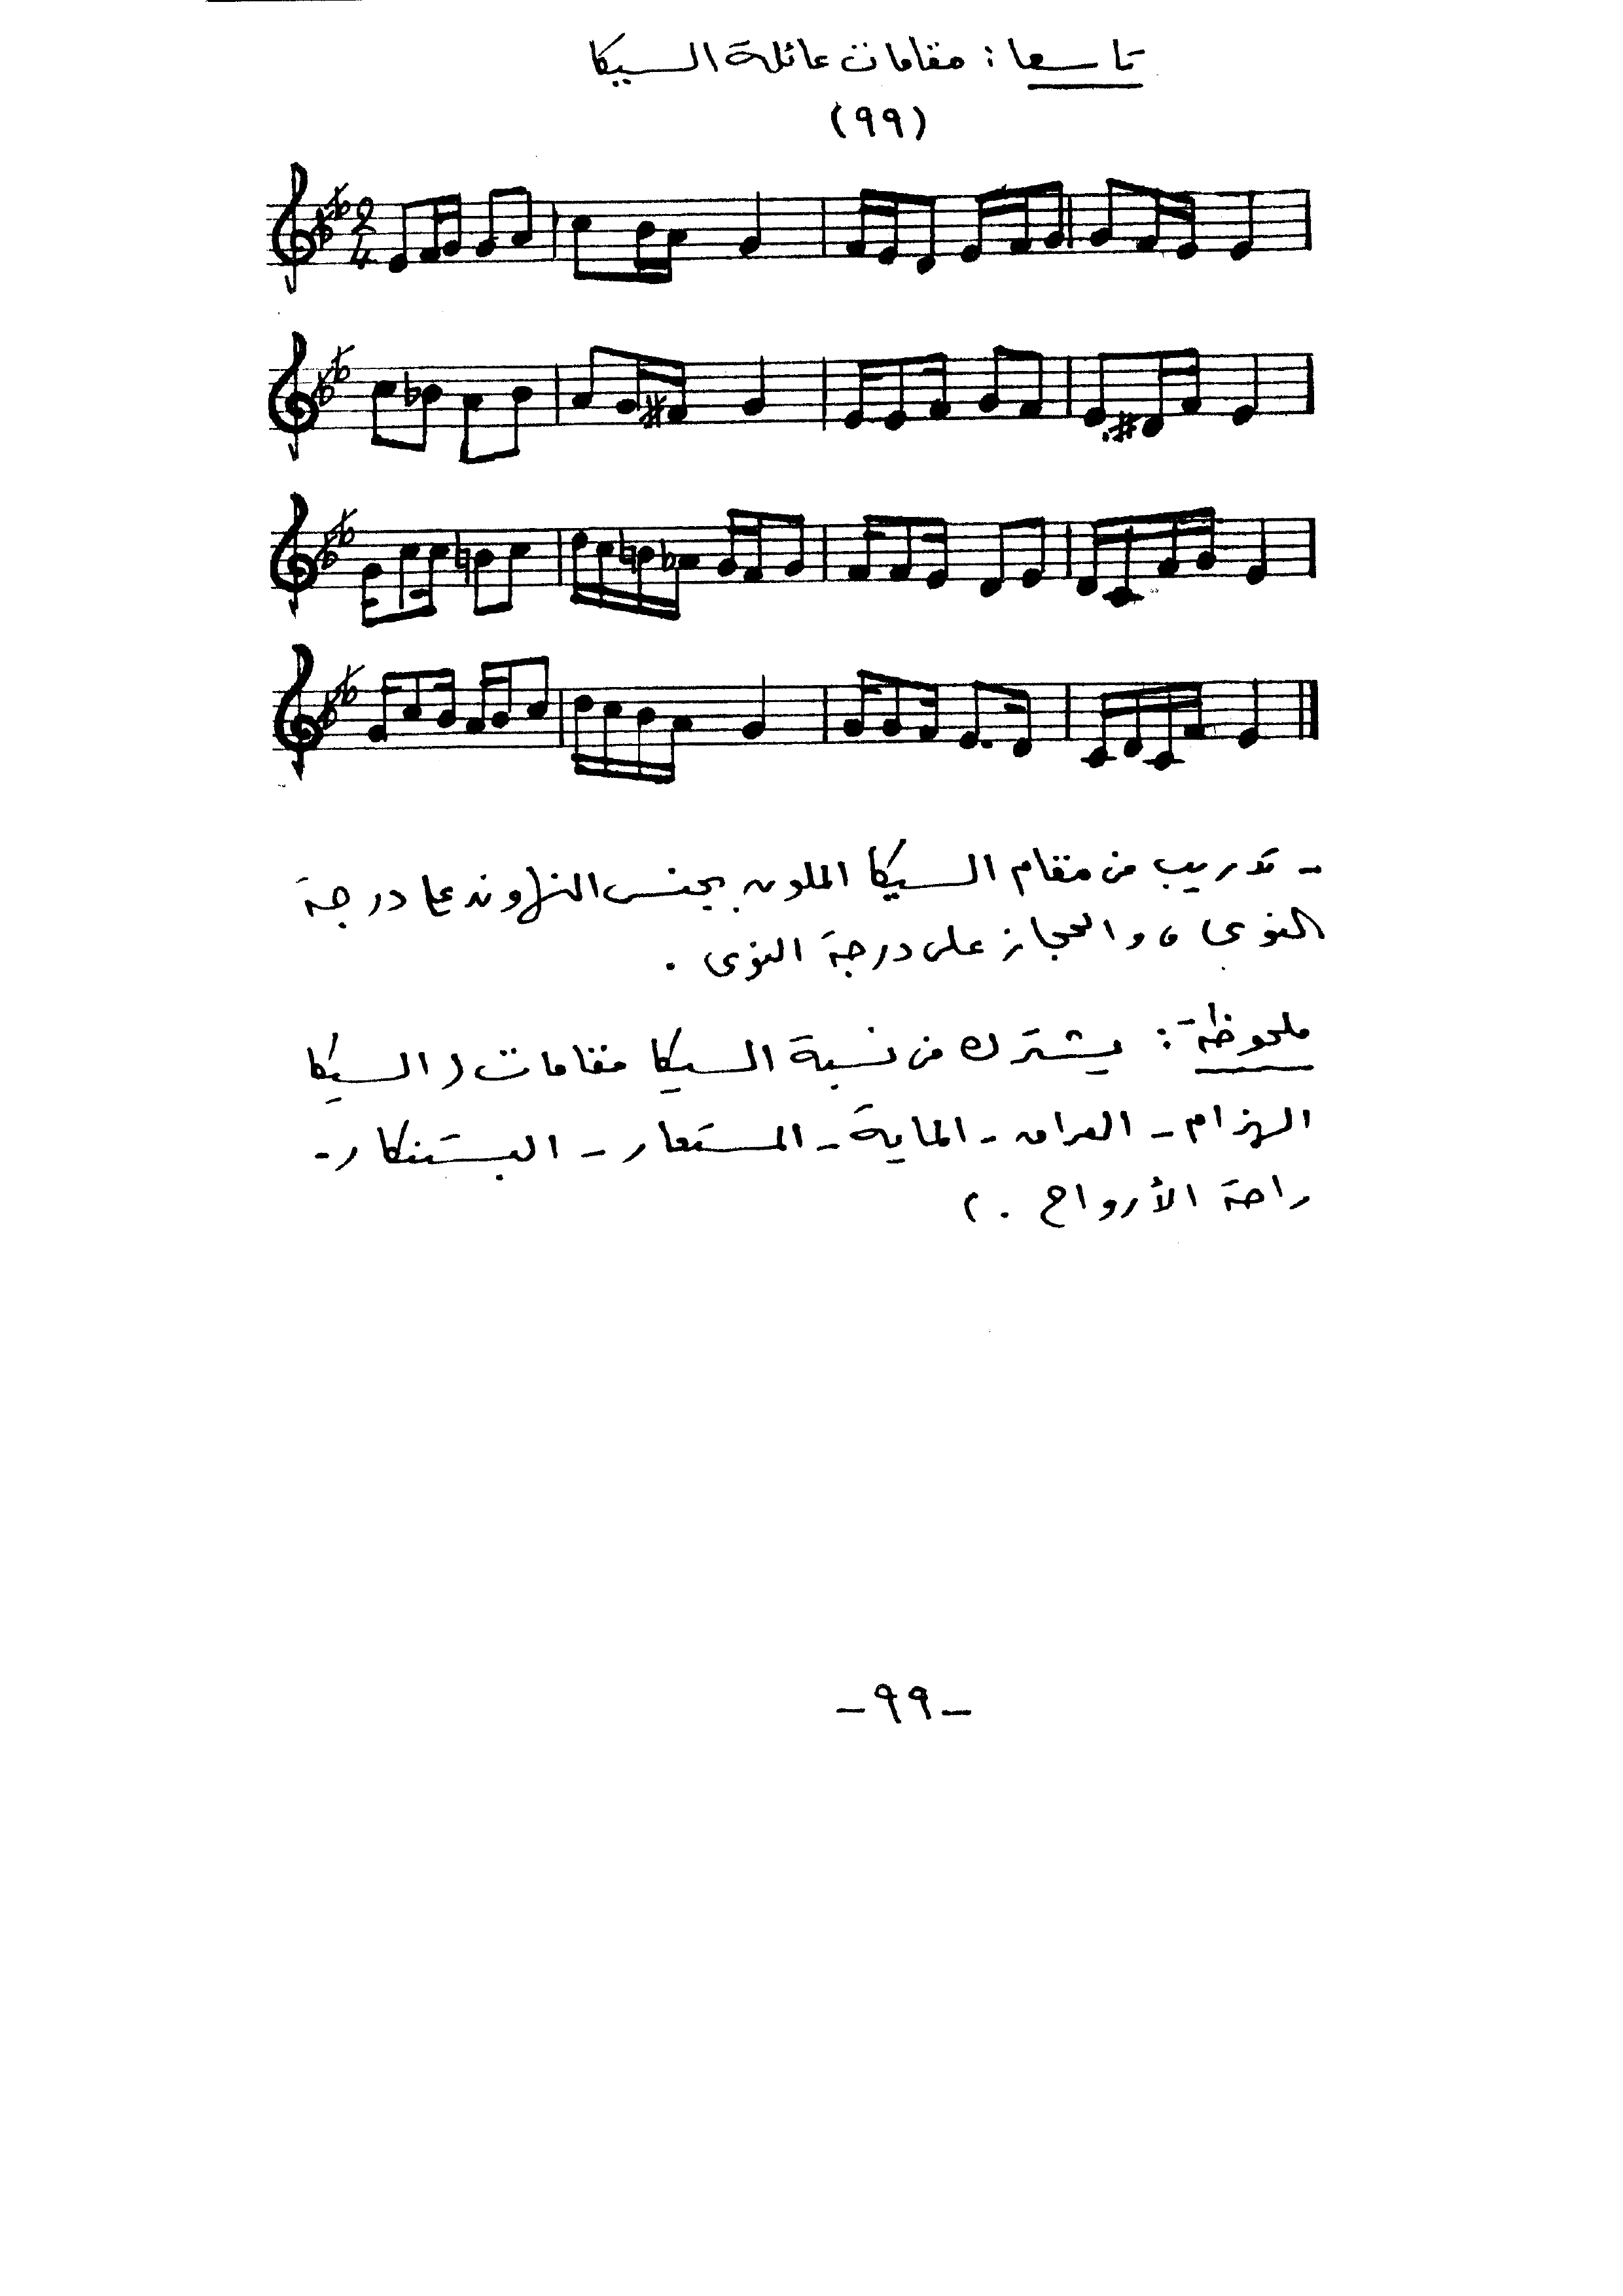 تاسعا : مقامات عائلة السيكا
(٩٩)
2
4
- تدريب من مقام السيكا الملون بجنس النهاوند على درجة
النوى ، والحجاز على درجة النوى .
ملحوظة : يشترك من نسبة السيكا مقامات ( السيكا
الهزام - العراق - الماية - المستعار - البستنكار -
راحة الأرواح . )
- ٩٩ -